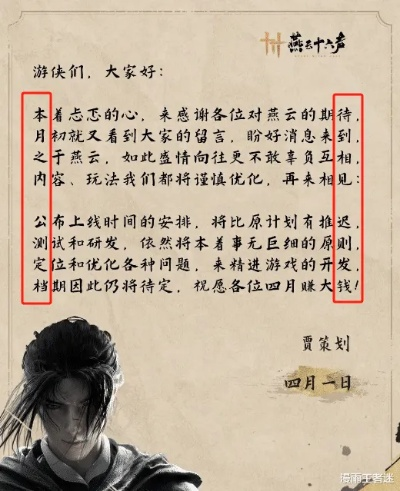 燕云十六声
游侠们，大家好：
本着忐忑的心，来感谢各位对燕云的期待，
月初就又看到大家的留言，盼好消息来到，
之于燕云，如此盛情向往更不敢辜负互相，
内容、玩法我们都将谨慎优化，再来相见：
公布上线时间的安排，将比原计划有推迟，
测试和研发，依然将本着事无巨细的原则，
定位和优化各种问题，来精进游戏的开发，
档期因此仍将待定，祝愿各位四月赚大钱！
贾策划
四月一日
漫雨王者迷